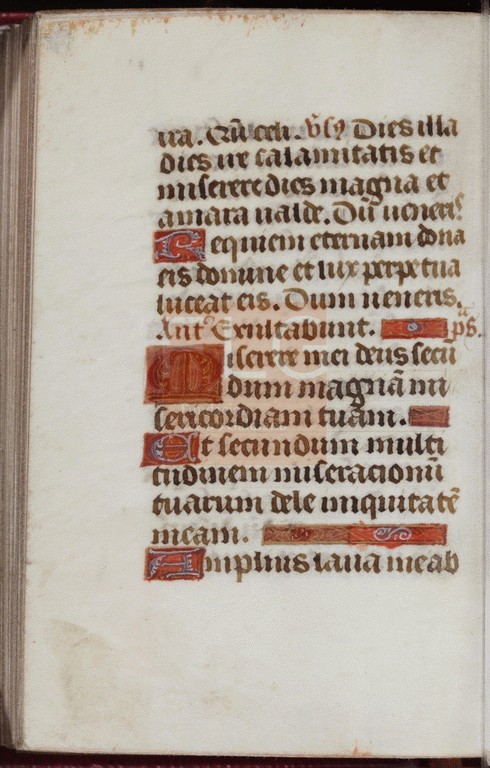 ura. Qñ celi. v̄s9 Dies illa
dies ire calamitatis et
miserere dies magna et
amara ualde. Dū ueneris
Requiem eternam dona
eis domine et lux perpetua
luceat eis. Dum ueneris.
Ant̄ Exultabunt. ps.
Miserere mei deus secū
dum magnā mi
sericordiam tuam.
Et secundum multi
tudinem miseracionū
tuarum dele iniquitatē
meam.
Amplius laua me ab